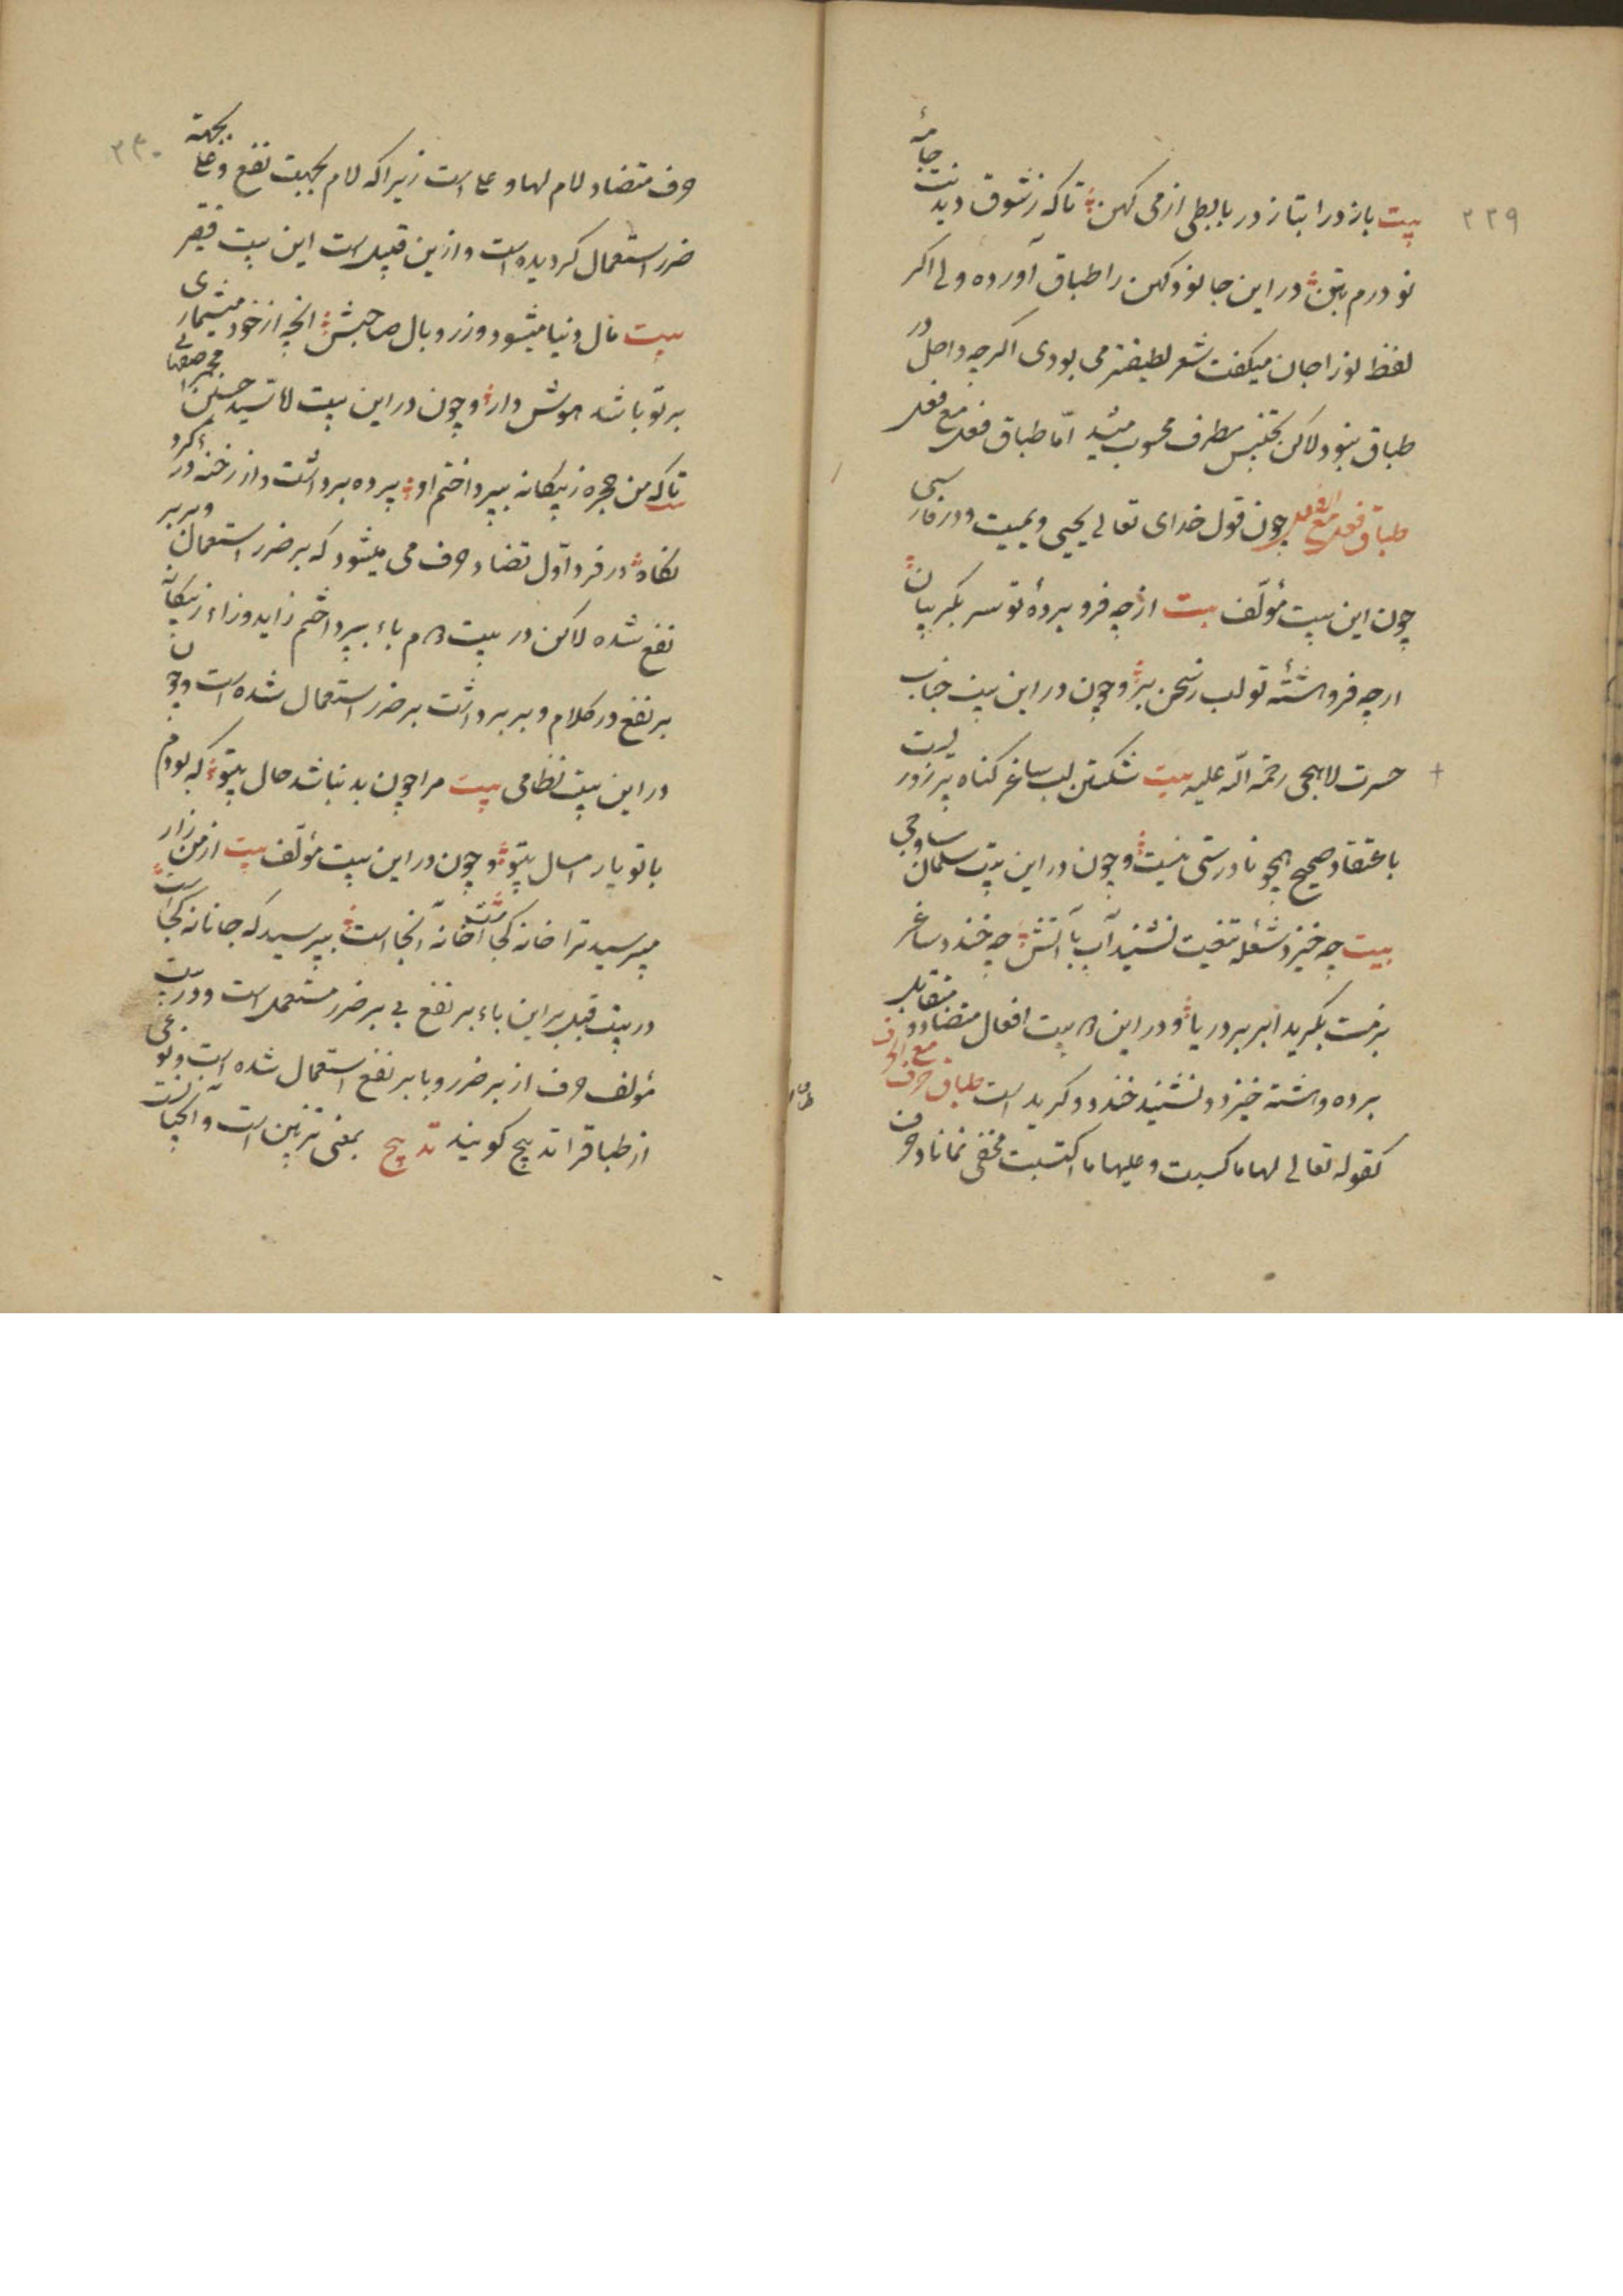 ۲۲۹
بیت باز درا بتاز در با بطی از می کهن تا که ز شوق دیدنت جامهٔ
نو درم بتن در این جا نو و کهن را طباق آورده ولی اکر
لفظ نو را جان میکفت شعر لطیفتر می بودی اکرچه داخل در
طباق نبود لاکن بتجنیس مطرف محسوب میشد امّا طباق فعل مع فعل
طباق فعل مع الفعل چون قول خدای تعالی یحیی و یمیت و در فارسی
چون این بیت مؤلّف بیت از چه فرو بردهٔ تو سر بکریبان
ازچه فرو هشتهٔ تو لب ز سخن بر و چون در این بیت جناب
حسرت لاهیجی رحمة الله علیه بیت شکستن لب ساغر کناه پرزوریست
باعتقاد صحیح همچو نادرستی نیست و چون در این بیت سلمان ساوجی
بیت چه خیزد شعله تیغت نشیند آب با آتش چه خندد ساغر
بزمت بکرید ابر بر دریا و در این بیت افعال متضاد و متقابل
برده و هشته خیزد و نشیند خندد و کرید است طباق حرف مع الحرف
کقوله تعالی لها ما کسبت و علیها ما اکتسبت مخفی نماناد حرف
۲۳۰
حرف متضاد لام لها و علی است زیرا که لام بجهت نفع و علی بجهة
ضرر استعمال کردیده است و ازین قبیل است این بیت فقیر
بیت مال دنیا میشود وزر و بال صاحبش انچه از خود میشماری
بر تو باشد هوش دار و چون در این بیت لا سید حسین مجمر صفهانی
تا که من حجره ز بیکانه بپرداختم او پرده برداشت و از رخنهٔ در کرد
نکاه در فرد اوّل تضاد حرف می میشود که بر ضرر استعمال و بر بر
نفع شده لاکن در بیت دوم باء بپرداختم زاید و زاء ز بیکانه
بر نفع در کلام و بر برداشت بر ضرر استعمال شده است و چون
در این بیت نظامی بیت مرا چون بد نباشد حال بیتو که بودم
با تو پار امسال بیتو و چون در این بیت مؤلّف بیت از من زار
مپرسید ترا خانه کجا است خانه آنجاست بپرسید که جانانه کجا است
در بیت قبل بر این باء بر نفع بی بر ضرر مستعمل است و در بیت
مؤلف حرف از بر ضرر و با بر نفع استعمال شده است و نوعی
از طباقرا تدبیج کویند تدبیج بمعنی تزیین است و آن